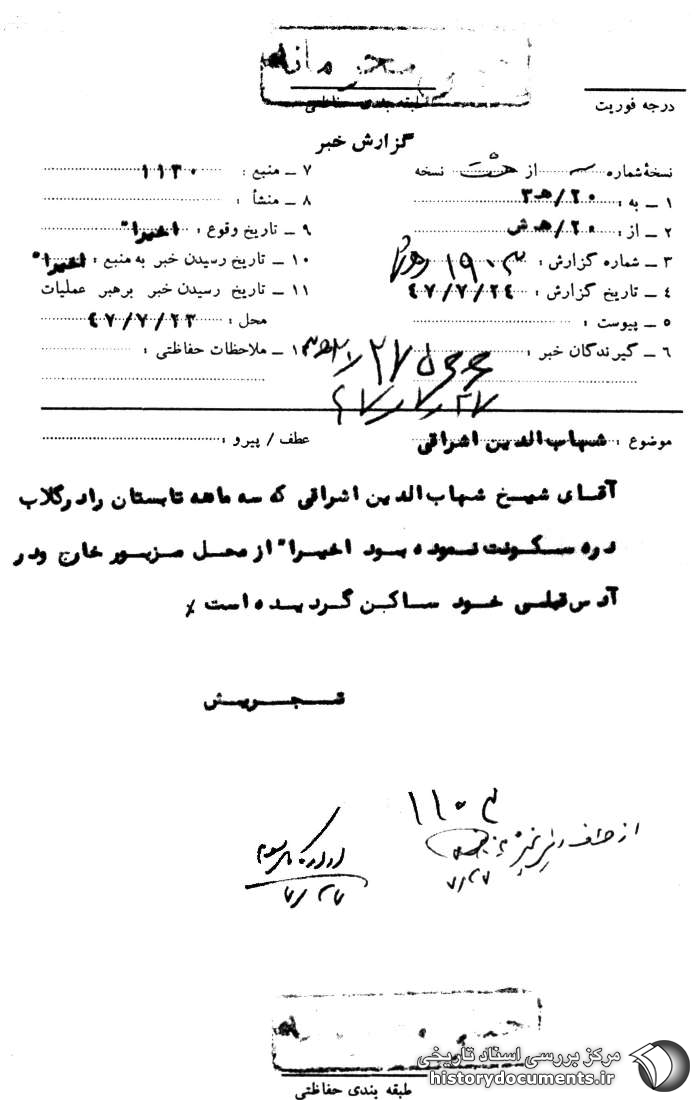 خیلی محرمانه
طبقه بندی حفاظتی
درجه فوریت
گزارش خبر
نسخهٔ شماره از هشت نسخه
۱ ـ به : ۲۰/هـ۳
۲ ـ از : ۲۰/هـ ش
۳ ـ شماره گزارش : ۱۹۰۳
۴ ـ تاریخ گزارش : ۴۷/۷/۲۴
۵ ـ پیوست :
۶ ـ گیرندگان خبر :
۷ ـ منبع : ۱۱۳۰
۸ ـ منشأ :
۹ ـ تاریخ وقوع : اخیرا"
۱۰ ـ تاریخ رسیدن خبر به منبع : اخیرا"
۱۱ ـ تاریخ رسیدن خبر برهبر عملیات
محل : ۴۷/۷/۲۳
ـ ملاحظات حفاظتی :
۴۷/۷/۲۷
موضوع : شهاب الدین اشراقی
عطف / پیرو :
آقای شیخ شهاب الدین اشراقی که سه ماهه تابستان رادرگلاب
دره سکونت نموده بود اخیرا" از محل مزبور خارج ودر
آدرس قبلی خود ساکن گردیده است
تجریش
۱۱۰۳
۷/۲۷
۷/۲۷
خیلی
طبقه بندی حفاظتی
مرکز بررسی اسناد تاریخی
historydocuments.ir